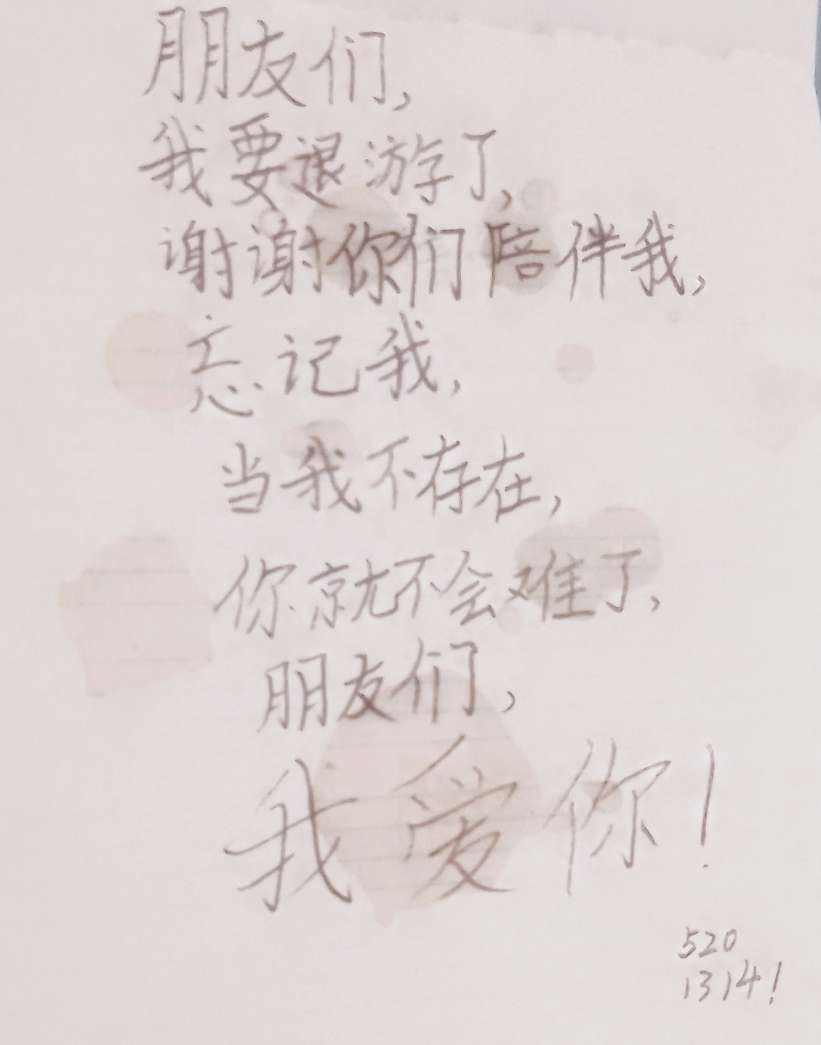 朋友们,
我要退游了,
谢谢你们陪伴我,
忘记我,
当我不存在,
你就不会难了,
朋友们,
我爱你!
520
1314!